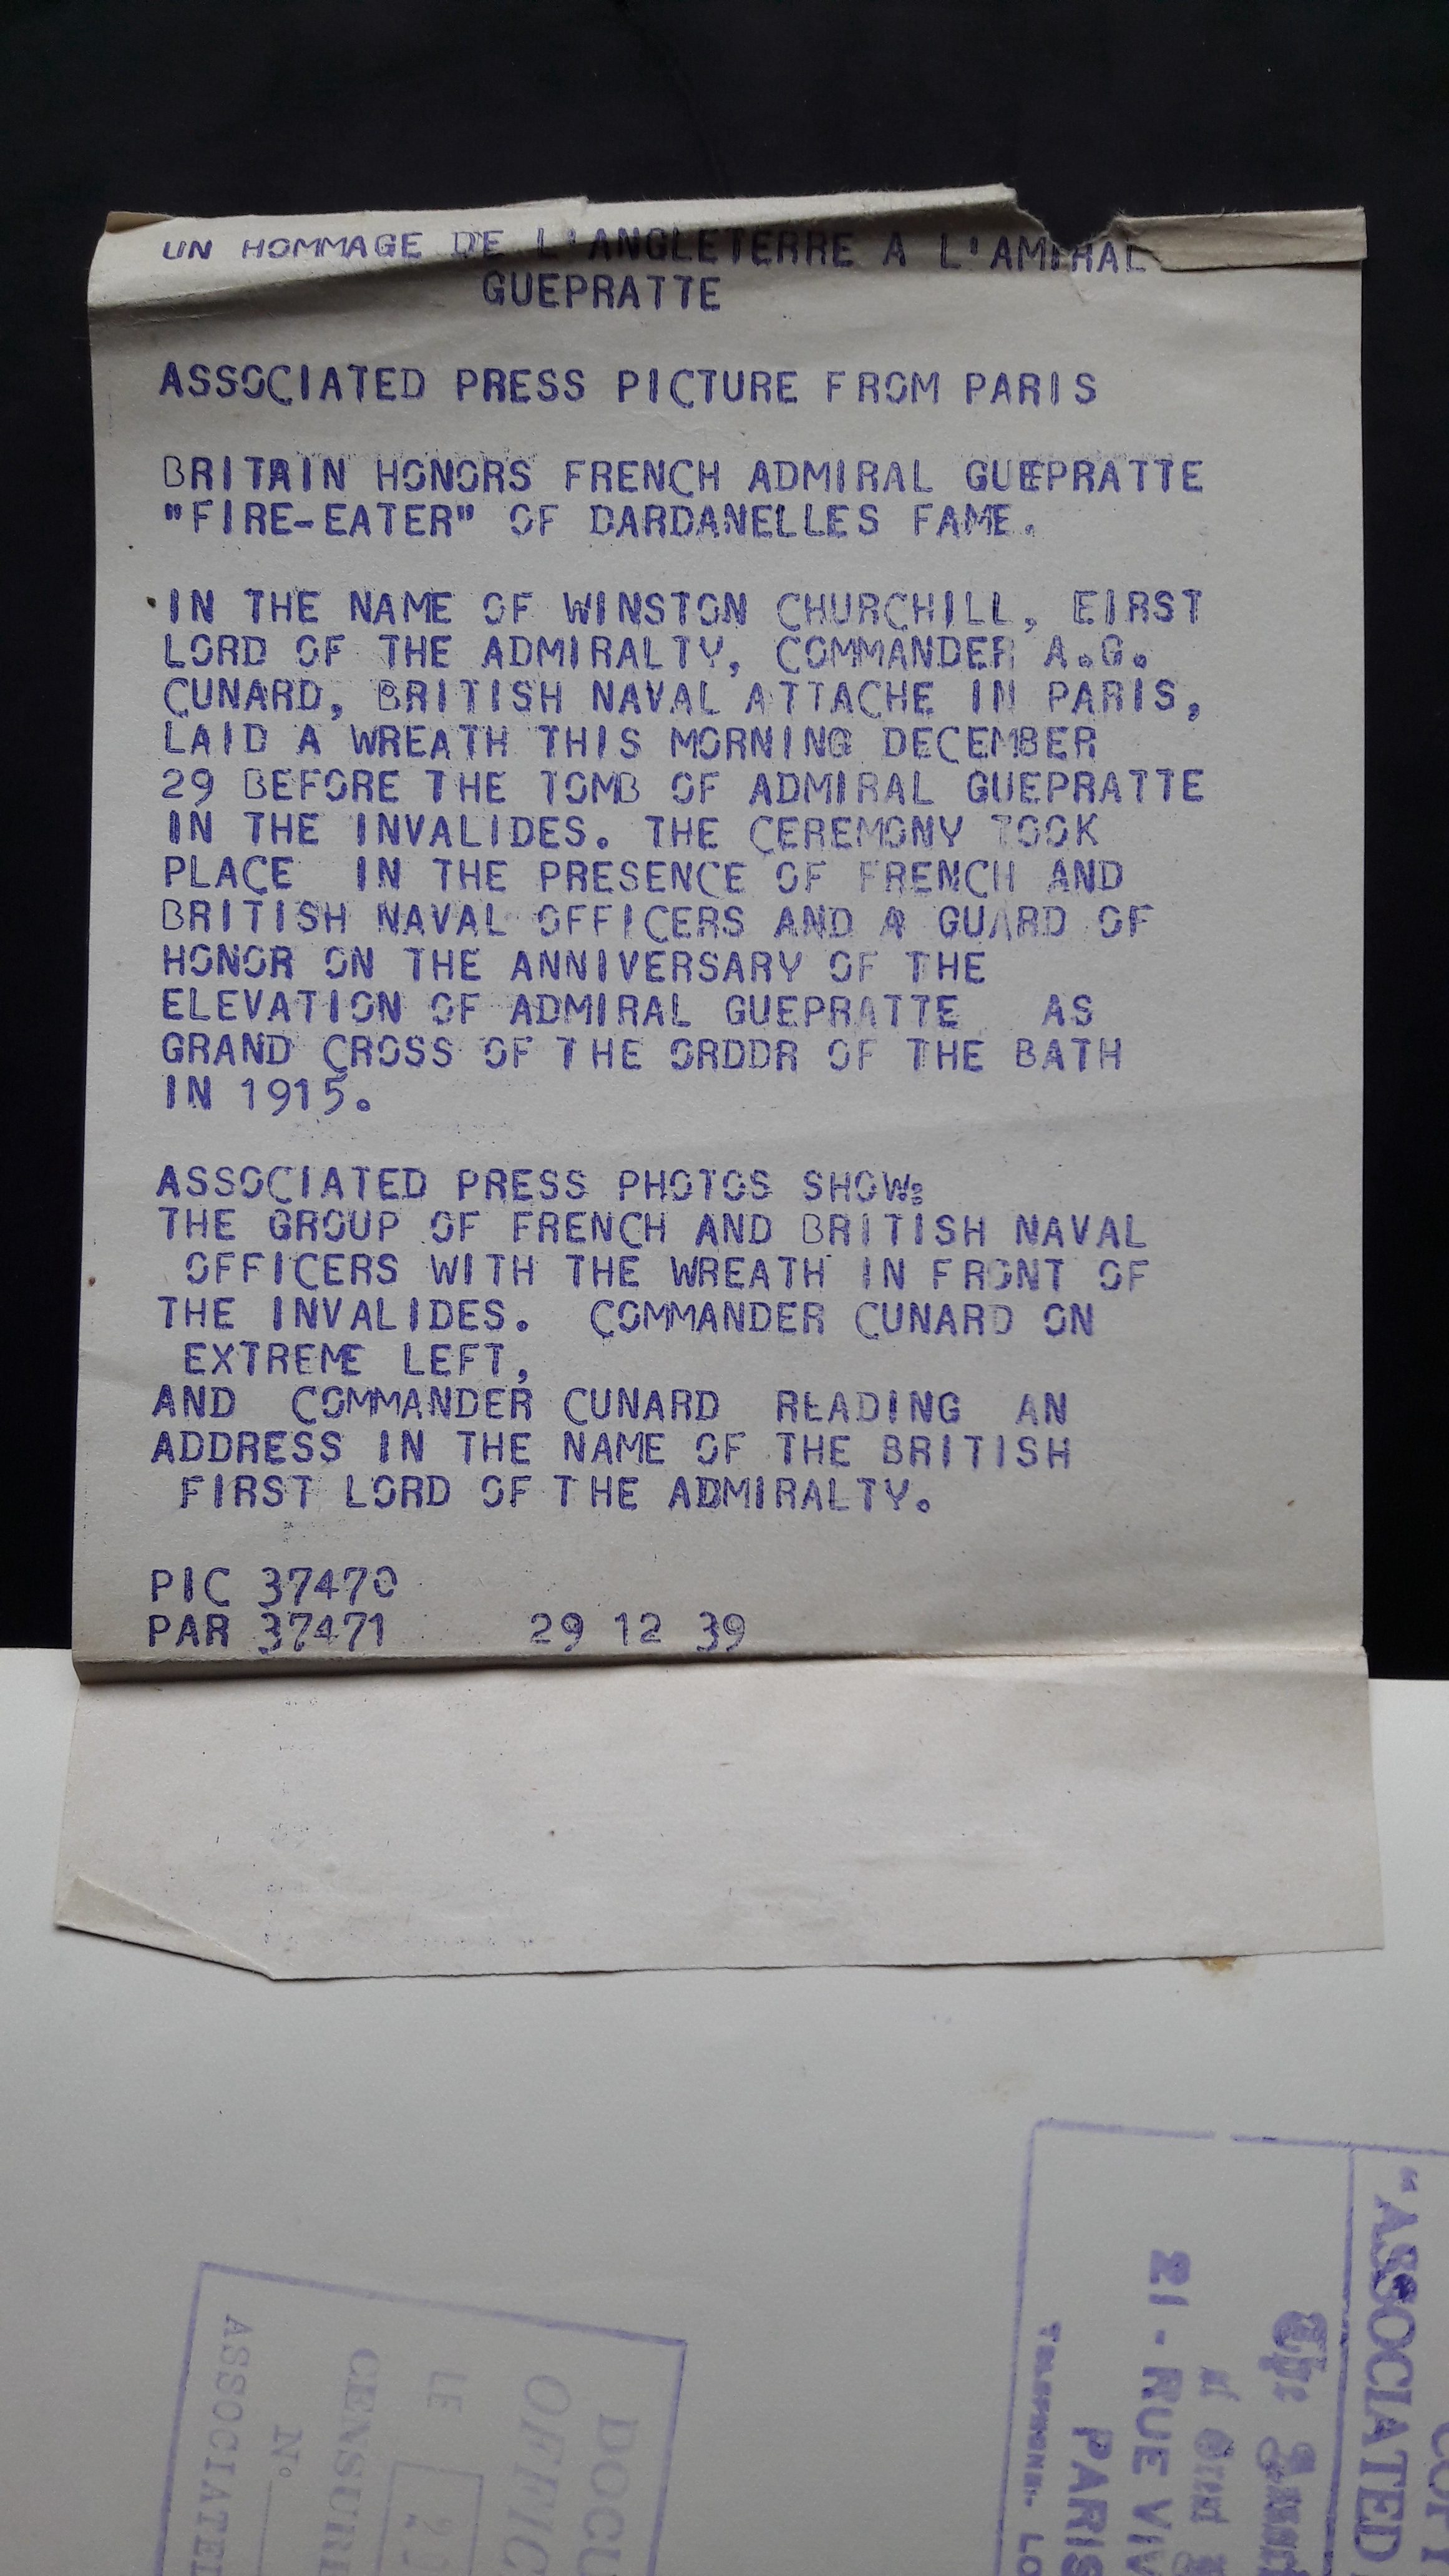 UN HOMMAGE DE L'ANGLETERRE A L'AMIRAL
GUEPRATTE
ASSOCIATED PRESS PICTURE FROM PARIS
BRITAIN HONORS FRENCH ADMIRAL GUEPRATTE
"FIRE-EATER" OF DARDANELLES FAME.
IN THE NAME OF WINSTON CHURCHILL, EIRST
LORD OF THE ADMIRALTY, COMMANDER A.G.
CUNARD, BRITISH NAVAL ATTACHE IN PARIS,
LAID A WREATH THIS MORNING DECEMBER
29 BEFORE THE TOMB OF ADMIRAL GUEPRATTE
IN THE INVALIDES. THE CEREMONY TOOK
PLACE IN THE PRESENCE OF FRENCH AND
BRITISH NAVAL OFFICERS AND A GUARD OF
HONOR ON THE ANNIVERSARY OF THE
ELEVATION OF ADMIRAL GUEPRATTE AS
GRAND CROSS OF THE ORDDR OF THE BATH
IN 1915.
ASSOCIATED PRESS PHOTOS SHOW:
THE GROUP OF FRENCH AND BRITISH NAVAL
OFFICERS WITH THE WREATH IN FRONT OF
THE INVALIDES. COMMANDER CUNARD ON
EXTREME LEFT,
AND COMMANDER CUNARD READING AN
ADDRESS IN THE NAME OF THE BRITISH
FIRST LORD OF THE ADMIRALTY.
PIC 37470
PAR 37471 29 12 39
"ASSOCIATED
21 - RUE VIV
PARIS
DOCU
OFFIC
LE
CENSURE
N°
ASSOCIATED